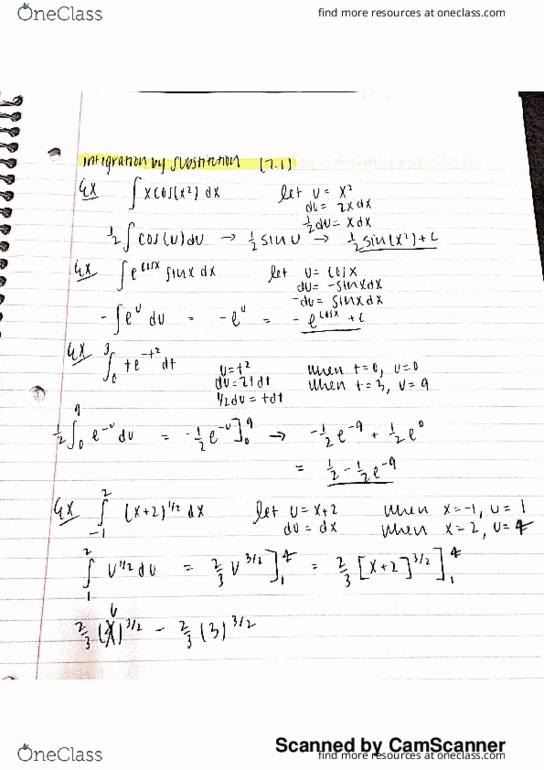 OneClass
find more resources at oneclass.com
integration by substitution (7.1)
Ex ∫ x cos(x²) dx let u = x²
du = 2x dx
½ du = x dx
½ ∫ cos(u) du → ½ sin u → ½ sin(x²) + c
Ex ∫ e^cosx sinx dx let u = cosx
du = -sinx dx
-du = sinx dx
- ∫ e^u du = - e^u = - e^cosx + c
Ex ∫₀³ t e^-t² dt u = t² when t = 0, u = 0
du = 2t dt when t = 3, u = 9
1/2 du = t dt
½ ∫₀⁹ e^-u du = - ½ e^-u ]₀⁹ → - ½ e^-9 + ½ e^0
= ½ - ½ e^-9
Ex ∫₋₁² (x+2)^1/2 dx let u = x+2 when x = -1, u = 1
du = dx when x = 2, u = 4
∫₁² u^1/2 du = 2/3 u^3/2 ]₁⁴ = 2/3 [x+2]^3/2 ]₁⁴
2/3 ( )^3/2 - 2/3 (3)^3/2
Scanned by CamScanner
OneClass
find more resources at oneclass.com